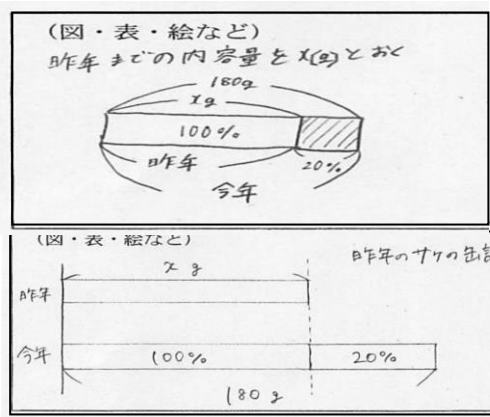 (図・表・絵など)
昨年までの内容量をx(g)とおく
180g
xg
100%
昨年
20%
今年
(図・表・絵など)
昨年のサケの缶詰
x g
昨年
今年
100%
20%
180g